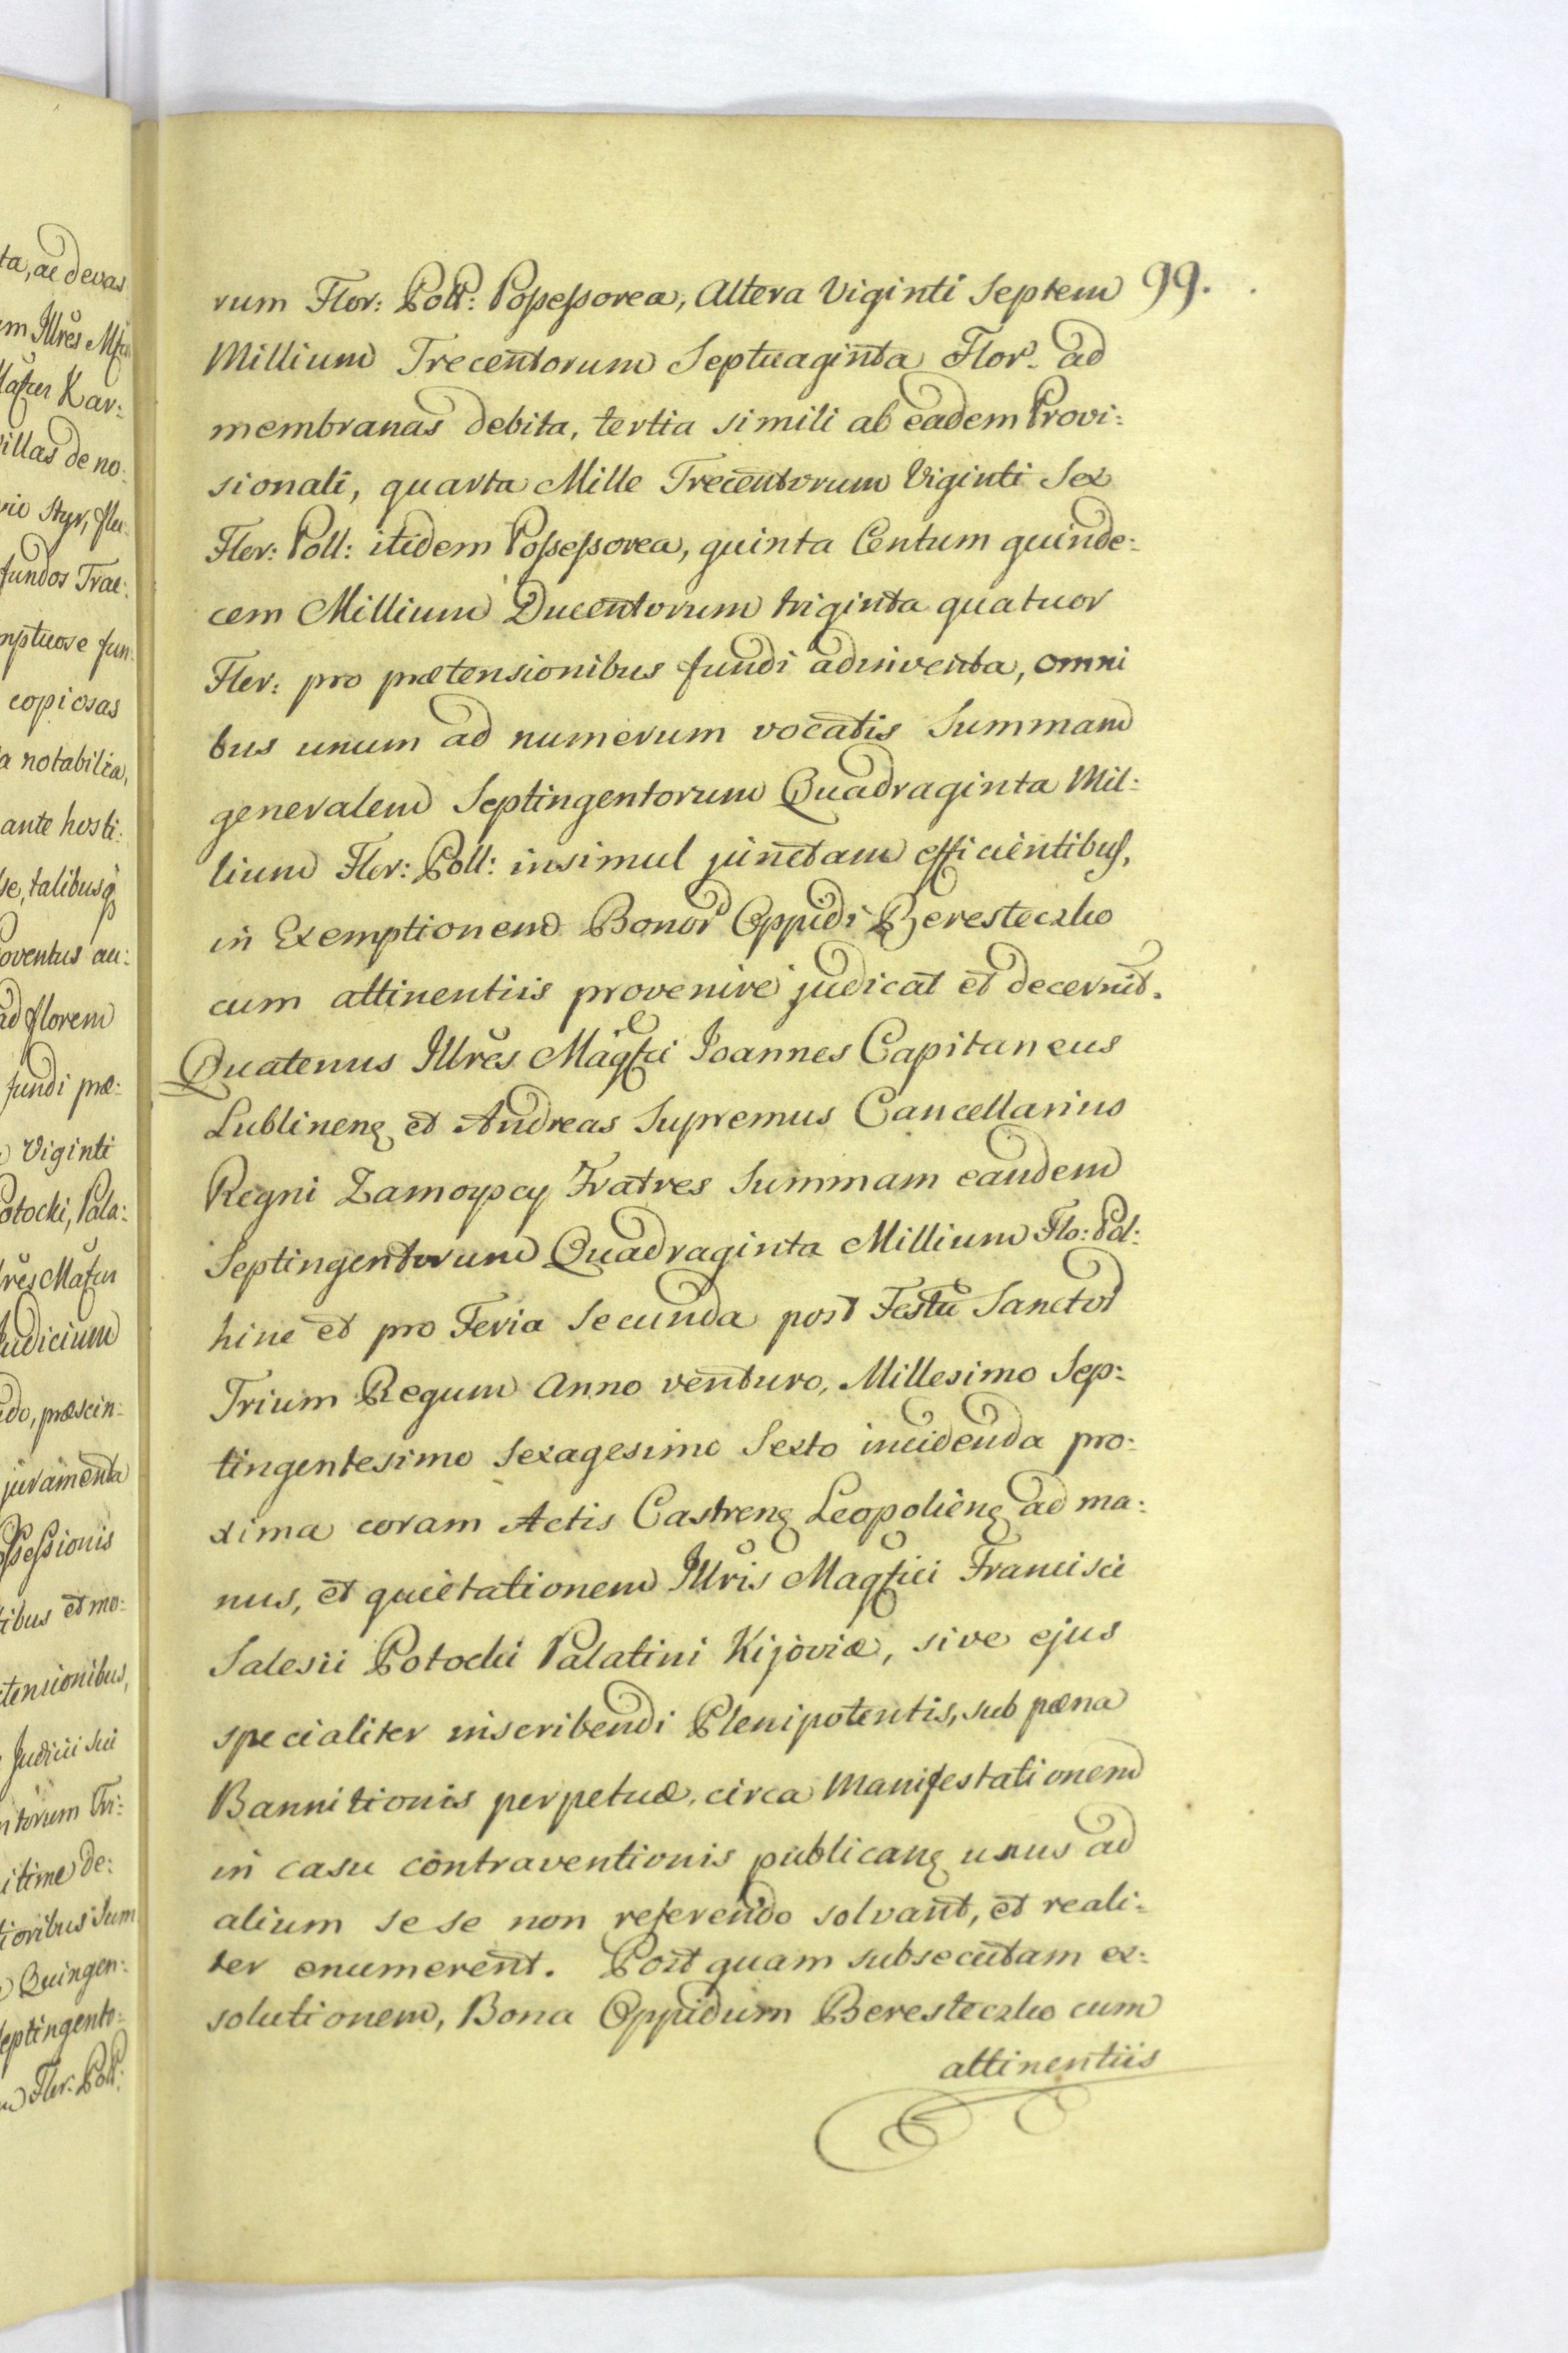 ta, ac devas
em Illrès Mfcu
Kar:
villas de no:
Styr, flu:
fundos Trac:
mptuose fun:
copiosas
a notabilia,
ante hosti:
se, talibusq
oventus au:
ad florem
fundi præ:
Viginti
Potocki, Pala:
Judicium
do, præscin:
juramenta
ossessionis
tibus et mo:
etensionibus,
Judicii sui
ntorum Tri:
itime de:
ioribus sum
Quingen:
septingento:
Flor: Poll:
99.
rum Flor: Poll: Possessorea, Altera Viginti Septem
Millium Trecentorum Septuaginta Flor. ad
membranas debita, tertia simili ab eadem Provi:
sionali, quarta Mille Trecentorum Viginti Sex
Flor: Poll: itidem Possessorea, quinta Centum quinde:
cem Millium Ducentorum triginta quatuor
Flor: pro prætensionibus fundi adinventa, omni
bus unum ad numerum vocatis Summam
generalem Septingentorum Quadraginta Mil:
lium Flor: Poll: insimul junctam efficientibus,
in Exemptionem Bonor Oppidi Beresteczko
cum attinentiis provenire judicat et decernit.
Quatenus Illrès Magfci Joannes Capitaneus
Lublineng et Andreas Supremus Cancellarius
Regni Zamoyscy Fratres Summam eandem
Septingentorum Quadraginta Millium Flo: Pol:
hinc et pro Feria Secunda post Festū Sanctor
Trium Regum Anno venturo, Millesimo Sep:
tingentesimo Sexagesimo Sexto incidenda pro:
xima coram Actis Castreng Leopolieng ad ma:
nus, et quietationem Illris Magfici Francisci
Salesii Potocki Palatini Kijoviæ, sive ejus
specialiter inscribendi Plenipotentis, sub pæna
Bannitionis perpetuæ, circa Manifestationem
in casu contraventionis publicang unus ad
alium sese non referendo solvant, et reali:
ter enumerent. Post quam subsecutam ex:
solutionem, Bona Oppidum Beresteczko cum
attinentiis